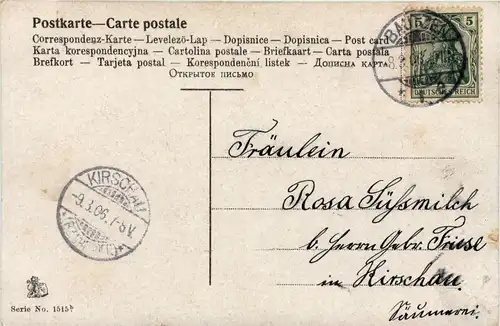 Postkarte—Carte postale
Correspondenz-Karte — Levelező-Lap — Dopisnice — Dopisnica — Post card
Karta korespondencyjna — Cartolina postale — Briefkaart — Carta postala
Brefkort — Tarjeta postal — Korespondenční listek — Дописна карта
Открытое письмо
BAUTZEN
5 5
DEUTSCHES REICH
Fräulein
Rosa Süßmilch
b. Herrn Gebr. Friese
in Kirschau.
Säumerei.
KIRSCHAU
-9.3.06. 7-8 V.
Serie No. 1515